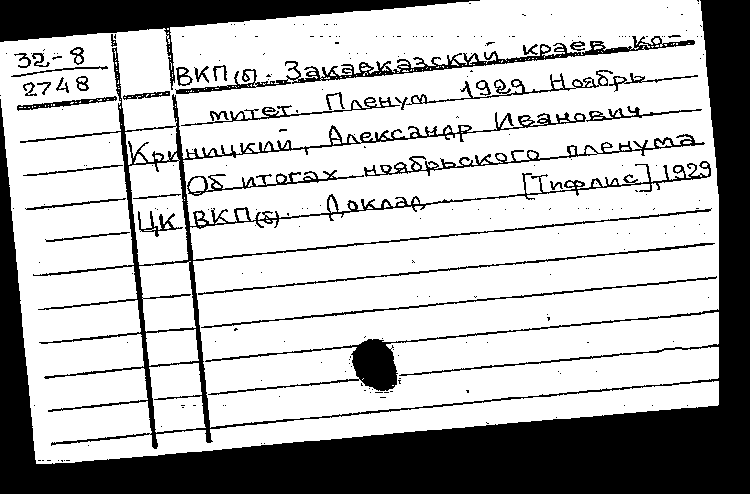 32.-8
2748
ВКП(б). Закавказский краев. ко-
митет. Пленум 1929. Ноябрь.
Криницкий, Александр Иванович.
Об итогах ноябрьского пленума
ЦК ВКП(б). Доклад [Тифлис], 1929